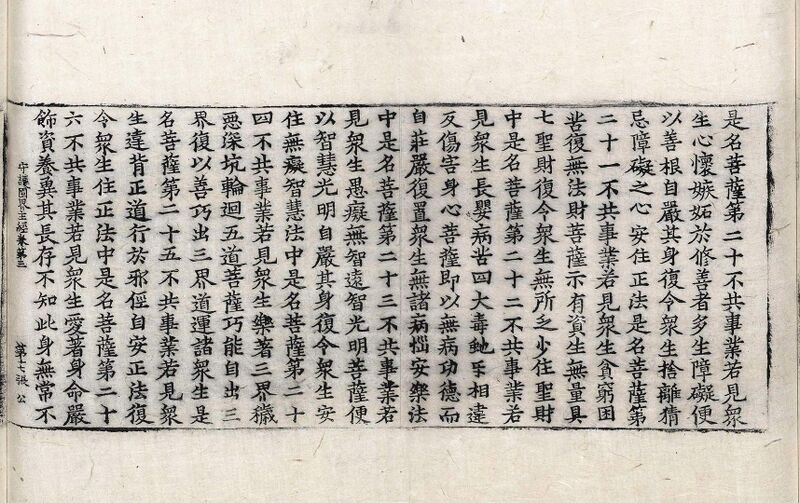 是名菩薩第二十不共事業若見衆
生心懷嫉妬於修善者多生障礙便
以善根自嚴其身復令衆生捨離猜
忌障礙之心安住正法是名菩薩第
二十一不共事業若見衆生貧窮困
苦復無法財菩薩示有資生無量具
七聖財復令衆生無所乏少住聖財
中是名菩薩第二十二不共事業若
見衆生長嬰病苦四大毒虵互相違
反傷害身心菩薩即以無病功德而
自莊嚴復置衆生無諸病惱安樂法
中是名菩薩第二十三不共事業若
見衆生愚癡無智遠智光明菩薩便
以智慧光明自嚴其身復令衆生安
住無癡智慧法中是名菩薩第二十
四不共事業若見衆生樂著三界穢
惡深坑輪迴五道菩薩巧能自出三
界復以善巧出三界道運諸衆生是
名菩薩第二十五不共事業若見衆
生違背正道行於邪徑自安正法復
令衆生住正法中是名菩薩第二十
六不共事業若見衆生愛著身命嚴
飾資養冀其長存不知此身無常不
守護國界主經卷第三 第十七張 公